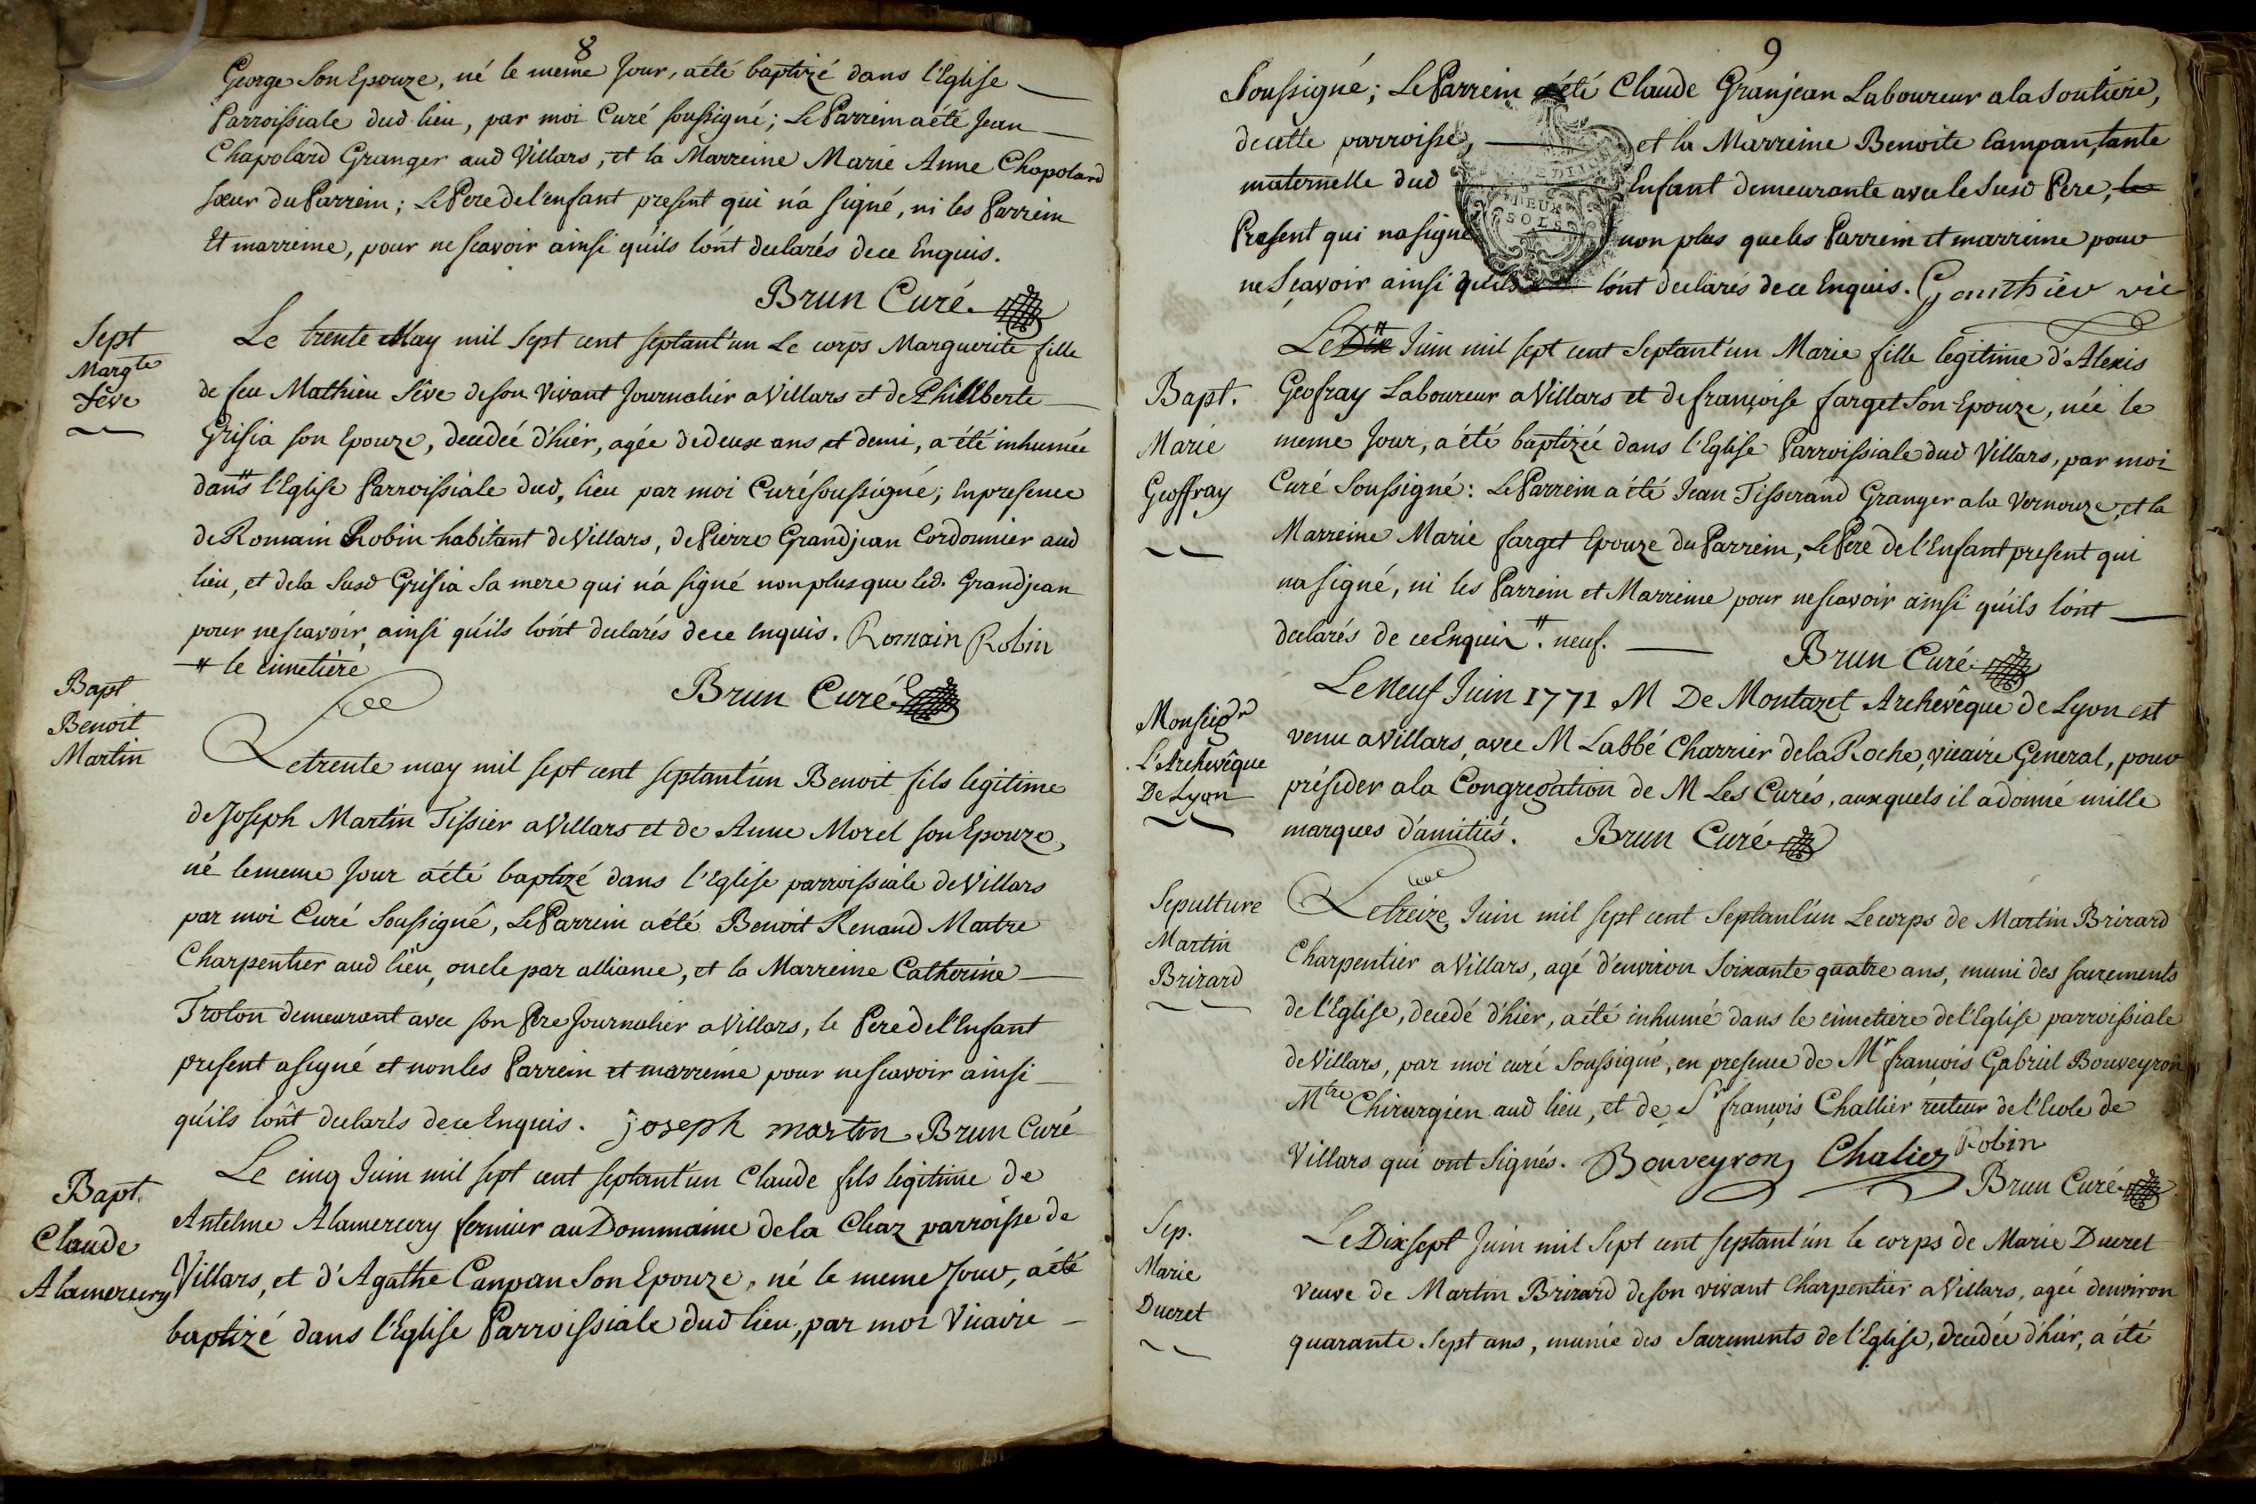 8
George Son Epouze, né le meme Jour, a été baptizé dans l'Eglise
Parroissiale dud. lieu, par moi Curé soussigné; Le Parrein a été Jean
Chapolard Granger aud Villars, et la Marreine Marie Anne Chapolard
sœur du Parrein; Le Pere de l'enfant present qui n'a signé, ni les Parrein
Et marreine, pour ne scavoir ainsi qu'ils l'ont declarés de ce Enquis.
Brun Curé
Sept
Margte
Sêve
Le trente May mil sept cent septant'un Le corps Marguerite fille
de feu Mathieu Sêve de son Vivant Journalier a Villars et de Philiberte
Grisia son Epouze, decedée d'hier, agée de deux ans et demi, a été inhumée
dans l'Eglise Parroissiale dud, lieu par moi Curé soussigné; En presence
de Romain Robin habitant de Villars, de Pierre Grandjean Cordonnier aud
lieu, et de la Susd Grisia Sa mere qui n'a signé non plus que led. Grandjean
pour ne scavoir ainsi qu'ils l'ont declarés de ce Enquis. Romain Robin
# le cimetiére
Brun Curé
Bapt
Benoit
Martin
Le trente may mil sept cent septant'un Benoit fils legitime
de Joseph Martin Tissier a Villars et de Anne Morel son Epouze,
né le meme Jour a été baptizé dans l'Eglise parroissiale de Villars
par moi Curé Soussigné, Le Parrein a été Benoit Renaud Maitre
Charpentier aud lieu, oncle par alliance, et la Marreine Catherine
Trolon demeurant avec son Pere Journalier a Villars, le Pere de l'Enfant
present a signé et non les Parrein et marreine pour ne scavoir ainsi
qu'ils l'ont declarés de ce Enquis. joseph martin Brun Curé
Bapt.
Claude
Alamercery
Le cinq Juin mil sept cent septant'un Claude fils legitime de
Antelme Alamercery fermier au Dommaine de la Chaz parroisse de
Villars, et d'Agathe Canpan Son Epouze, né le meme Jour, a été
baptizé dans l'Eglise Parroissiale dud lieu, par moi Vicaire
9
Soussigné; Le Parrein a été Claude Granjean Laboureur a la Soutiere,
de cette parroisse, et la Marreine Benoite Campan, tante
maternelle dud Enfant demeurante avec le Susd Pere, le
Present qui na signé non plus que les Parrein et marreine pour
ne Sçavoir ainsi qu'ils l'ont declarés de ce Enquis. Gouthier vic
DEUX
SOLS
Bapt.
Marie
Geoffray
Le Dix # Juin mil sept cent Septant'un Marie fille legitime d'Alexis
Geofray Laboureur a Villars et de françoise farget Son Epouze, née le
meme Jour, a été baptizée dans l'Eglise Parroissiale dud Villars, par moi
Curé Soussigné: Le Parrein a été Jean Tisserand Granger a la Vernouze, et la
Marreine Marie farget Epouze du Parrein, Le Pere de l'Enfant present qui
na signé, ni les Parrein et Marreine pour ne scavoir ainsi qu'ils l'ont
declarés de ce Enquis #. neuf.
Brun Curé
Monseigr
L'Archevêque
De Lyon
Le Neuf Juin 1771 M De Montazet Archevêque de Lyon est
venu a Villars, avec M Labbé Charrier de la Roche, vicaire General, pour
présider a la Congregation de M Les Curés, auxquels il a donné mille
marques d'amitiés. Brun Curé
Sepulture
Martin
Brirard
Le treize Juin mil sept cent Septant'un Le corps de Martin Brirard
Charpentier a Villars, agé d'environ Soixante quatre ans, muni des sacrements
de l'Eglise, decedé d'hier, a été inhumé dans le cimetiere de l'Eglise parroissiale
de Villars, par moi curé Soussigné, en presence de Mr françois Gabriel Bouveyron
Mtre Chirurgien aud lieu, et de Sr françois Challier recteur de l'Ecole de
Villars qui ont Signés. Bouveyron Chaliez Robin
Brun Curé
Sep.
Marie
Ducret
Le Dix sept Juin mil Sept cent septant'un le corps de Marie Ducret
Veuve de Martin Brirard de son vivant Charpentier a Villars, agée d'environ
quarante Sept ans, munie des Sacrements de l'Eglise, decedée d'hier, a été